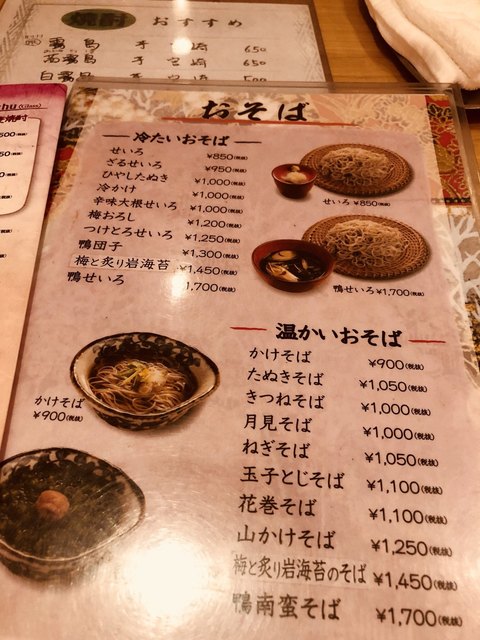 焼酎 おすすめ
霧島 芋 宮崎 650
芋 宮崎 650
白霧島 芋 宮崎 500
おそば
冷たいおそば
せいろ ¥850(税抜)
ざるせいろ ¥950(税抜)
ひやしたぬき ¥1,000(税抜)
冷かけ ¥1,000(税抜)
辛味大根せいろ ¥1,000(税抜)
梅おろし ¥1,200(税抜)
つけとろせいろ ¥1,250(税抜)
鴨団子 ¥1,300(税抜)
梅と炙り岩海苔 ¥1,450(税抜)
鴨せいろ 1,700(税抜)
せいろ ¥850(税抜)
鴨せいろ ¥1,700(税抜)
温かいおそば
かけそば ¥900(税抜)
たぬきそば ¥1,050(税抜)
きつねそば ¥1,000(税抜)
月見そば ¥1,000(税抜)
ねぎそば ¥1,050(税抜)
玉子とじそば ¥1,100(税抜)
花巻そば ¥1,100(税抜)
山かけそば ¥1,250(税抜)
梅と炙り岩海苔のそば ¥1,450(税抜)
鴨南蛮そば ¥1,700(税抜)
かけそば
¥900(税抜)